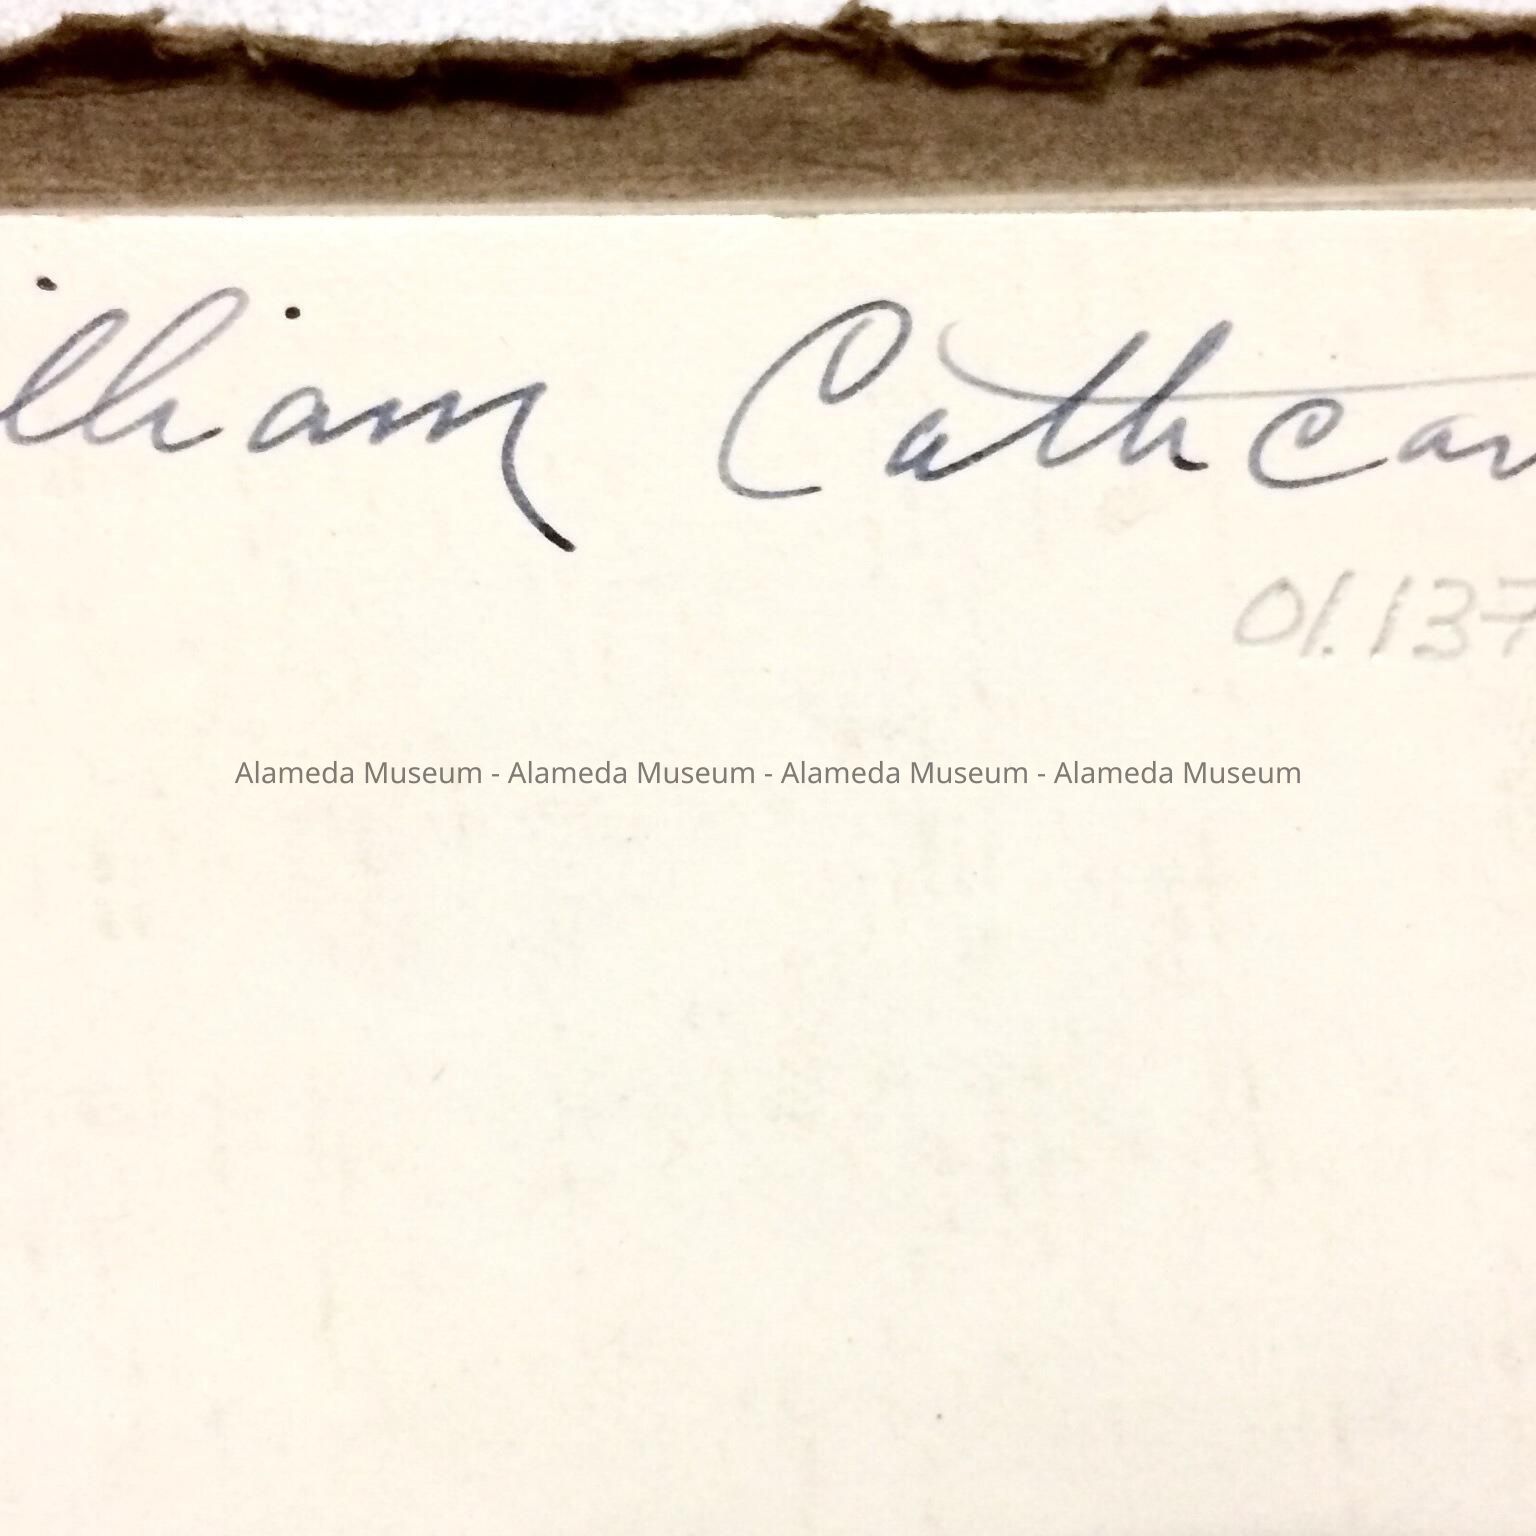 illiam Cathcar
01.137
Alameda Museum - Alameda Museum - Alameda Museum - Alameda Museum